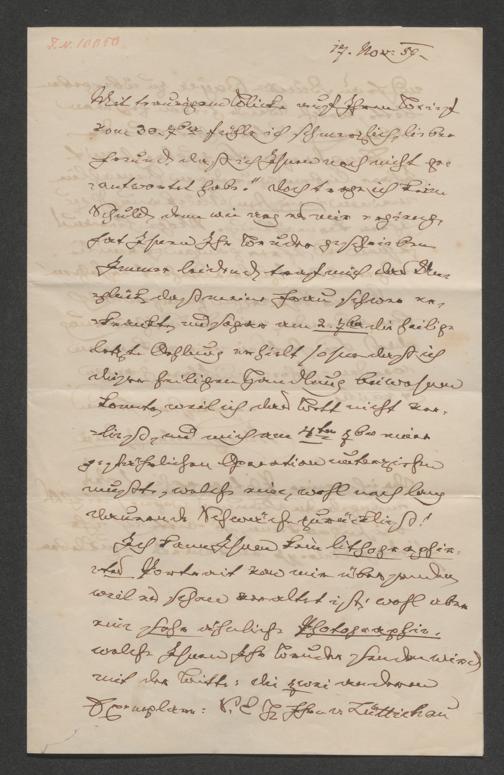 I.N. 10050
17. Nov. 59.
Mit traurigem Blicke auf Ihren Brief
vom 30. fühle ich schmerzlich, lieber
Freund, daß ich Ihnen noch nicht ge-
antwortet habe. Doch trage ich keine
Schuld, denn wie es mir erging,
hat Ihnen Ihr Bruder geschrieben.
Immer leidend, traf mich das Un-
glück, daß meine Frau schwer er-
krankte, und sogar am 2. die heilige
letzte Oehlung erhielt, ohne daß ich
dieser heiligen Handlung beiwohnen
konnte, weil ich das Bett nicht ver-
ließ, und mich am 4ten einer
gefährlichen Operation unterziehen
mußte, welche eine wohl noch lang
dauernde Schwäche zurückließ!
Ich kann Ihnen kein lithographir-
tes Portrait von mir übersenden
weil es schon veraltet ist; wohl aber
eine sehr ähnliche Photographie,
welche Ihnen Ihr Bruder senden wird
mit der Bitte: die zwei anderen
Exemplare: Fr v. Lüttichau